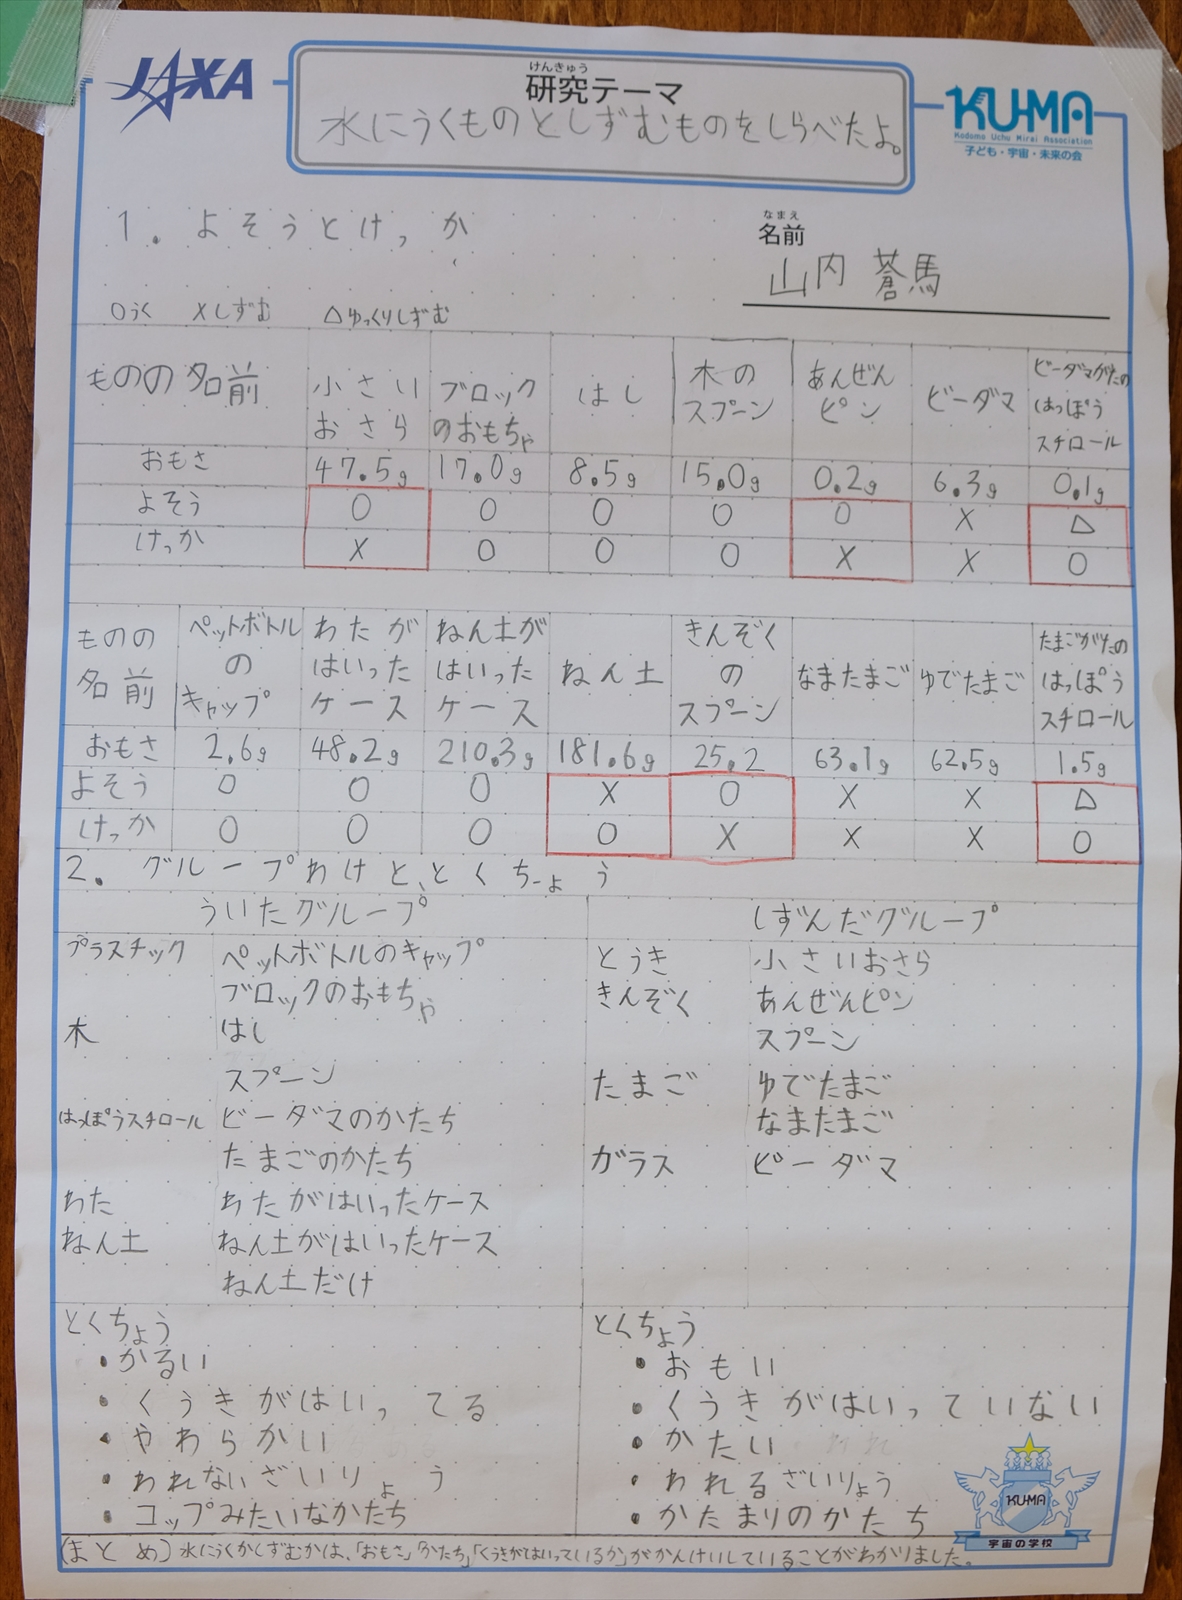 JAXA
けんきゅう
研究テーマ
水にうくものとしずむものをしらべたよ。
KU-MA
Kodomo Uchu Mirai Association
子ども・宇宙・未来の会
1. よそうとけっか
なまえ
名前
山内 蒼馬
○うく ×しずむ △ゆっくりしずむ
ものの名前 小さいおさら ブロックのおもちゃ はし 木のスプーン あんぜんピン ビーダマ ビーダマがたのはっぽうスチロール
おもさ 47.5g 17.0g 8.5g 15.0g 0.2g 6.3g 0.1g
よそう ○ ○ ○ ○ ○ × △
けっか × ○ ○ ○ × × ○
ものの名前 ペットボトルのキャップ わたがはいったケース ねん土がはいったケース ねん土 きんぞくのスプーン なまたまご ゆでたまご たまごがたのはっぽうスチロール
おもさ 2.6g 48.2g 210.3g 181.6g 25.2 63.1g 62.5g 1.5g
よそう ○ ○ ○ × ○ × × △
けっか ○ ○ ○ ○ × × × ○
2. グループわけと、とくちょう
ういたグループ
プラスチック ペットボトルのキャップ
ブロックのおもちゃ
木 はし
スプーン
はっぽうスチロール ビーダマのかたち
たまごのかたち
わた わたがはいったケース
ねん土 ねん土がはいったケース
ねん土だけ
とくちょう
・かるい
・くうきがはいってる
・やわらかい
・われないざいりょう
・コップみたいなかたち
しずんだグループ
とうき 小さいおさら
きんぞく あんぜんピン
スプーン
たまご ゆでたまご
なまたまご
ガラス ビーダマ
とくちょう
・おもい
・くうきがはいっていない
・かたい
・われるざいりょう
・かたまりのかたち
KU-MA
宇宙の学校
(まとめ)水にうくかしずむかは、「おもさ」「かたち」「くうきがはいっているか」がかんけいしていることがわかりました。